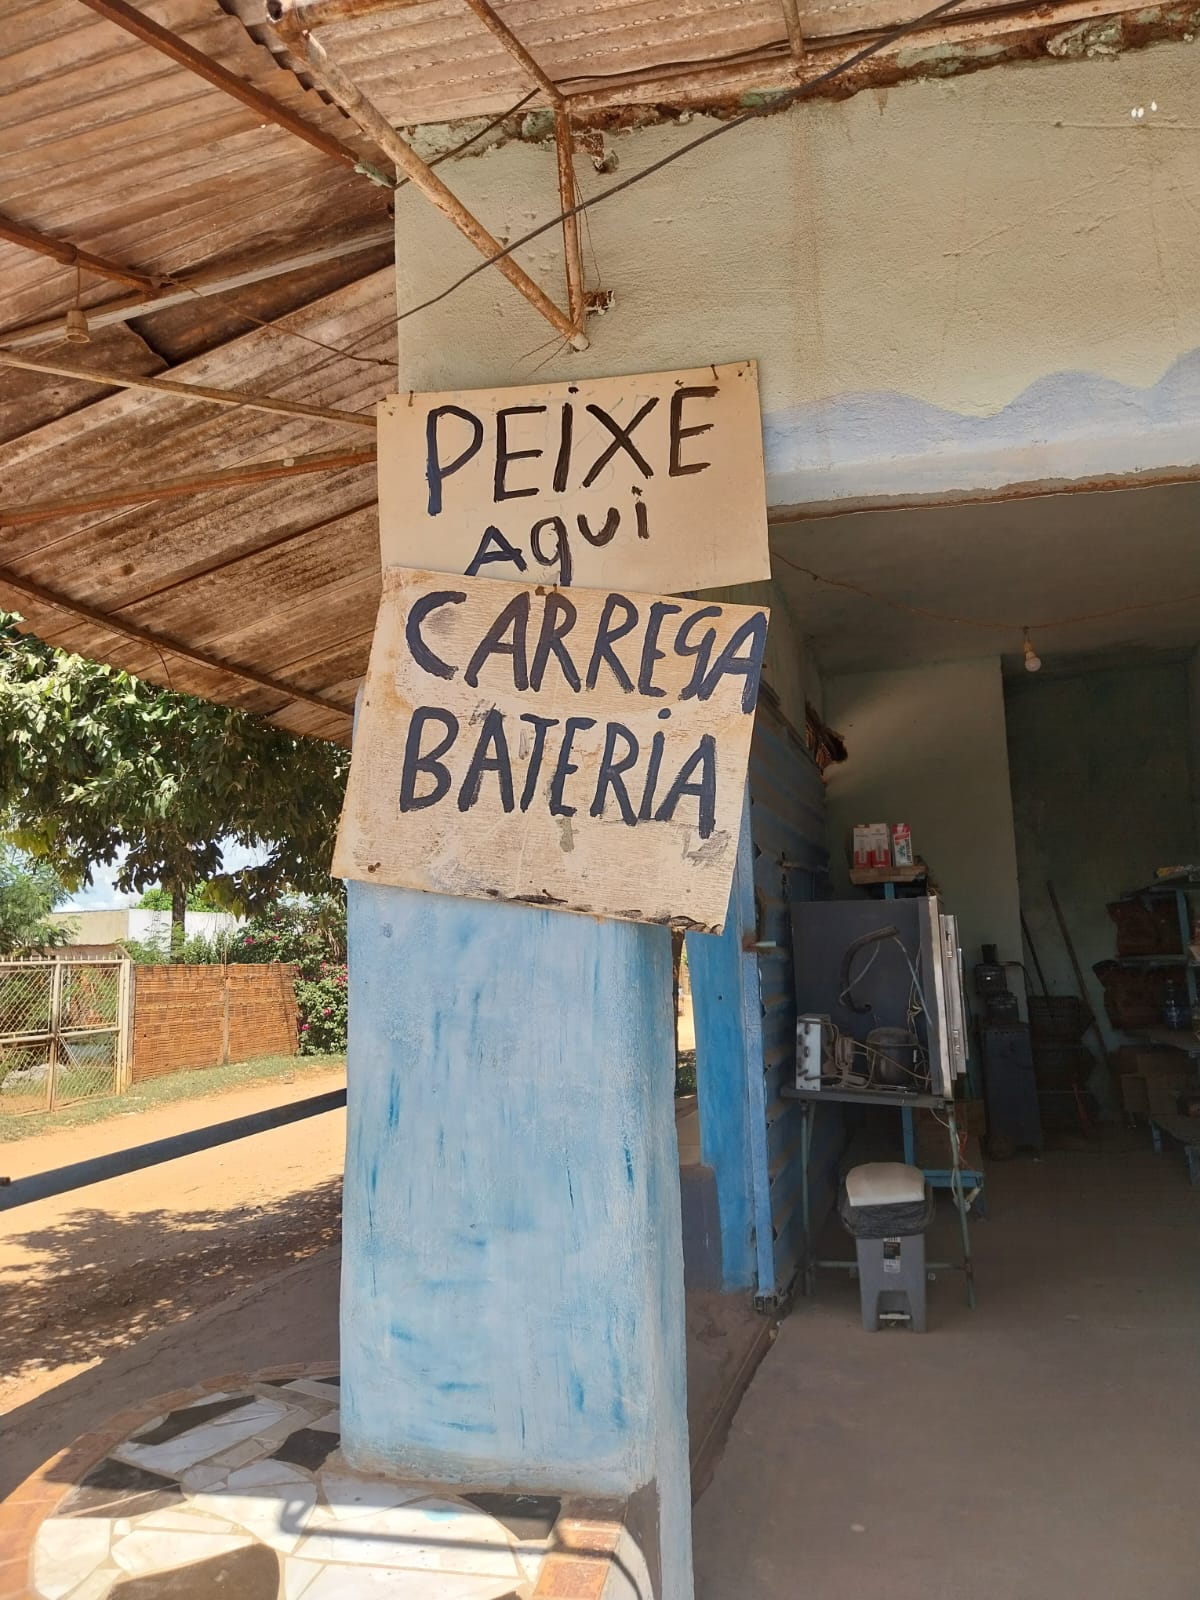 PEIXE
Aqui
CARREGA
BATERiA